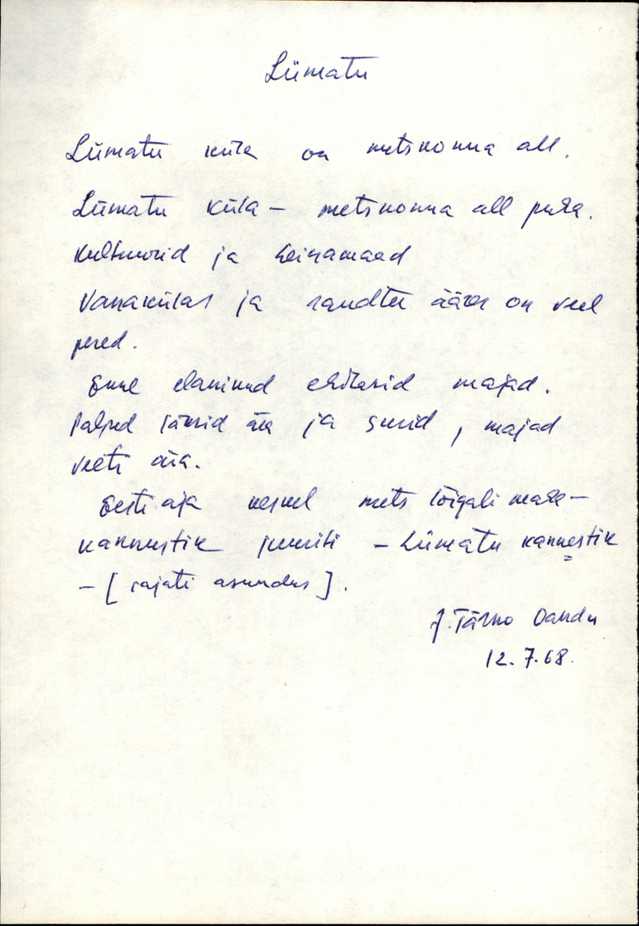 Liimatu
Liimatu küla on metskonna all.
Liimatu küla – metskonna all puha.
Kultuurid ja heinamaad
Vanakülas ja randtee ääres on veel
pered.
Enne elanikud ehitasid majad.
Paljud läksid ära ja surid, majad
veeti ära.
Eesti aja keskel mets lõigati maha –
kannustik juuriti – Liimatu kannestik
– [rajati asundus].
J. Tärno Oandu
12.7.68.